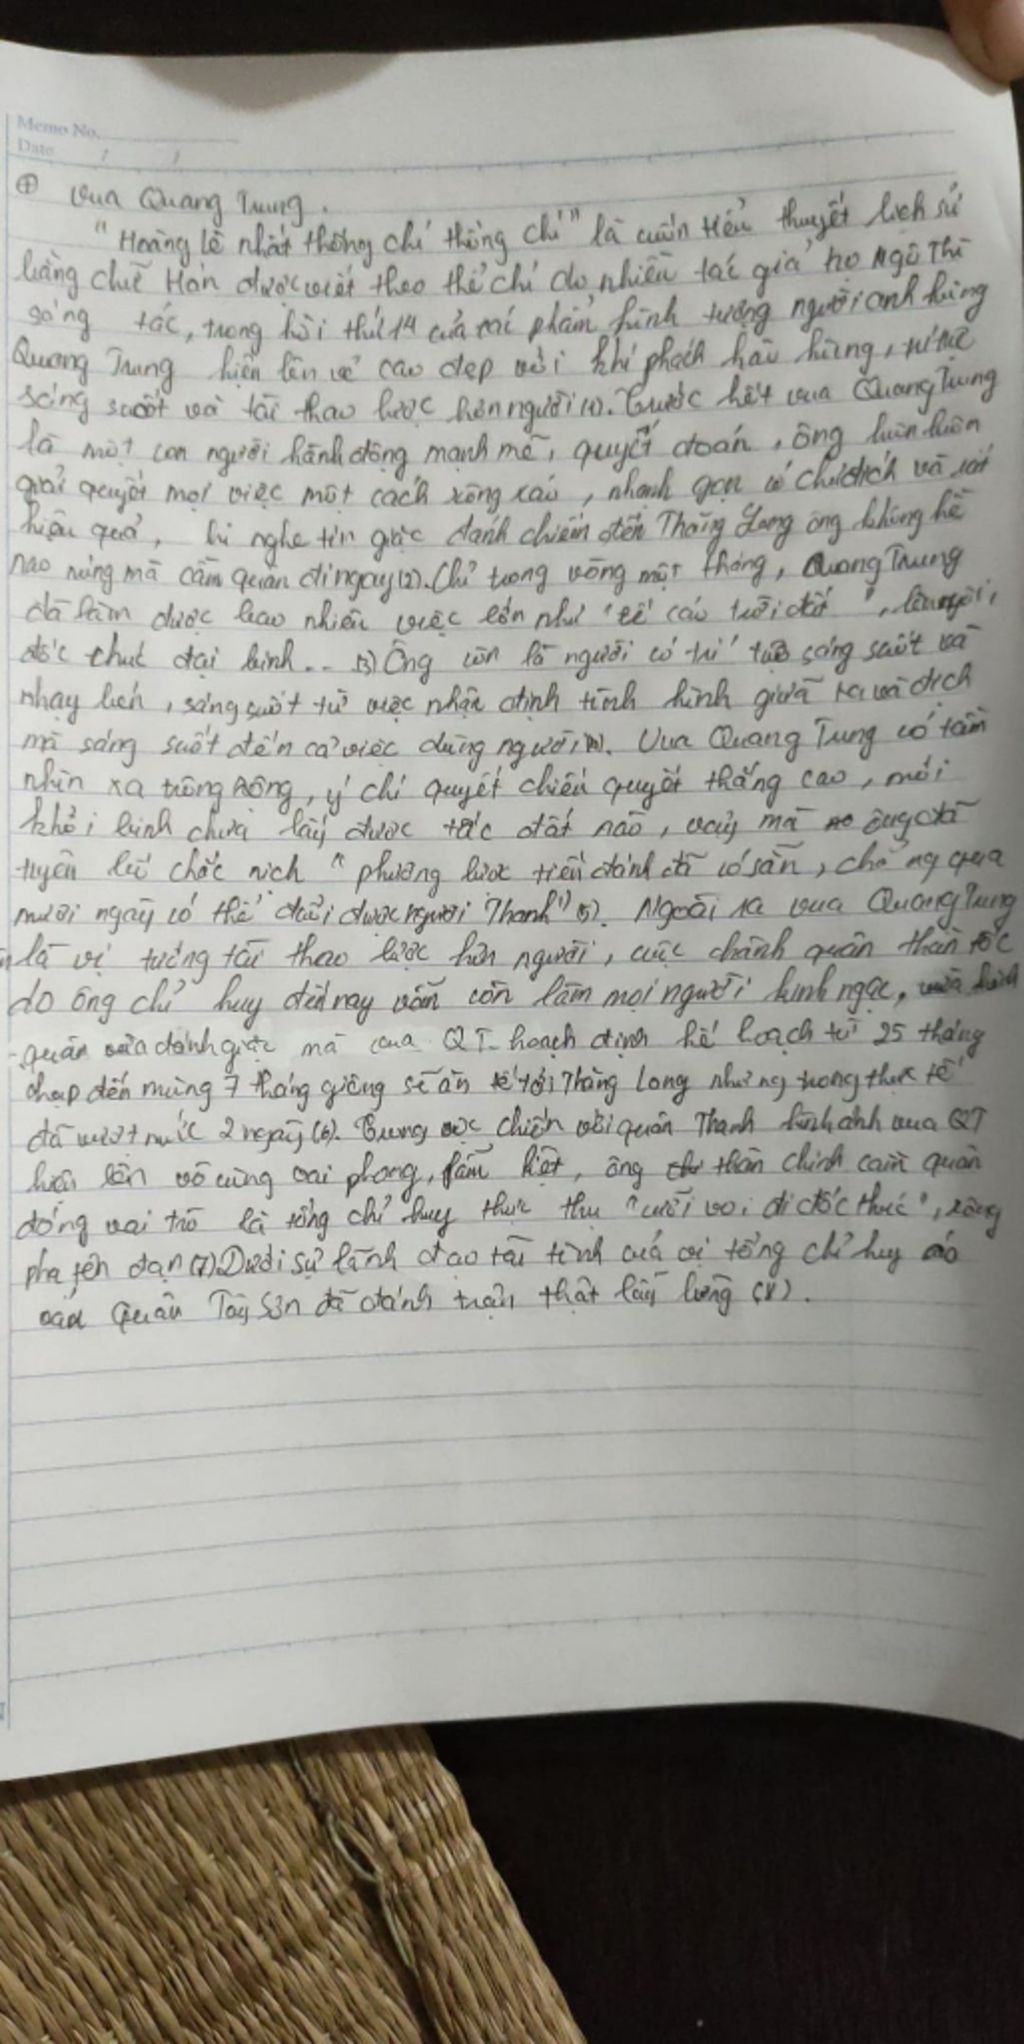 Memo No.
Date / /
⊕ Vua Quang Trung.
"Hoàng Lê nhất thống chí thống chí" là cuốn tiểu thuyết lịch sử
bằng chữ Hán được viết theo thể chí do nhiều tác giả họ Ngô Thì
sáng tác, trong hồi thứ 14 của tác phẩm hình tượng người anh hùng
Quang Trung hiện lên vẻ cao đẹp với khí phách hào hùng, trí tuệ
sáng suốt và tài thao lược hơn người (1). Trước hết vua Quang Trung
là một con người hành động mạnh mẽ, quyết đoán, ông luôn luôn
giải quyết mọi việc một cách xông xáo, nhanh gọn có chủ đích và rất
hiệu quả, khi nghe tin giặc đánh chiếm đến Thăng Long ông không hề
nao núng mà cầm quân đi ngay (2). Chỉ trong vòng một tháng, Quang Trung
đã làm được bao nhiêu việc lớn như "tế cáo trời đất", lên ngôi,
đốc thuất đại binh... (3) Ông còn là người có trí tuệ sáng suốt và
nhạy bén, sáng suốt từ việc nhận định tình hình giữa ta và địch
mà sáng suốt đến cả việc dùng người (4). Vua Quang Trung có tầm
nhìn xa trông rộng, ý chí quyết chiến quyết thắng cao, mới
khởi binh chưa lấy được tấc đất nào, vậy mà ông đã
tuyên bố chắc nịch "phương lược tiến đánh đã có sẵn, chẳng qua
mười ngày có thể đuổi được người Thanh" (5). Ngoài ra vua Quang Trung
là vị tướng tài thao lược hơn người, cuộc hành quân thần tốc
do ông chỉ huy đến nay vẫn còn làm mọi người kinh ngạc, vừa hành
quân vừa đánh giặc mà vua QT hoạch định kế hoạch từ 25 tháng
chạp đến mùng 7 tháng giêng sẽ ăn tế tới Thăng Long nhưng trong thực tế
đã vượt mức 2 ngày (6). Trong cuộc chiến với quân Thanh hình ảnh vua QT
hiện lên vô cùng oai phong, lẫm liệt, ông thân chinh cầm quân
đóng vai trò là tổng chỉ huy thực thụ "cưỡi voi đi đốc thúc", xông
pha tên đạn (7) Dưới sự lãnh đạo tài tình của vị tổng chỉ huy áo
vải quân Tây Sơn đã đánh trận thật lẫy lừng (8).